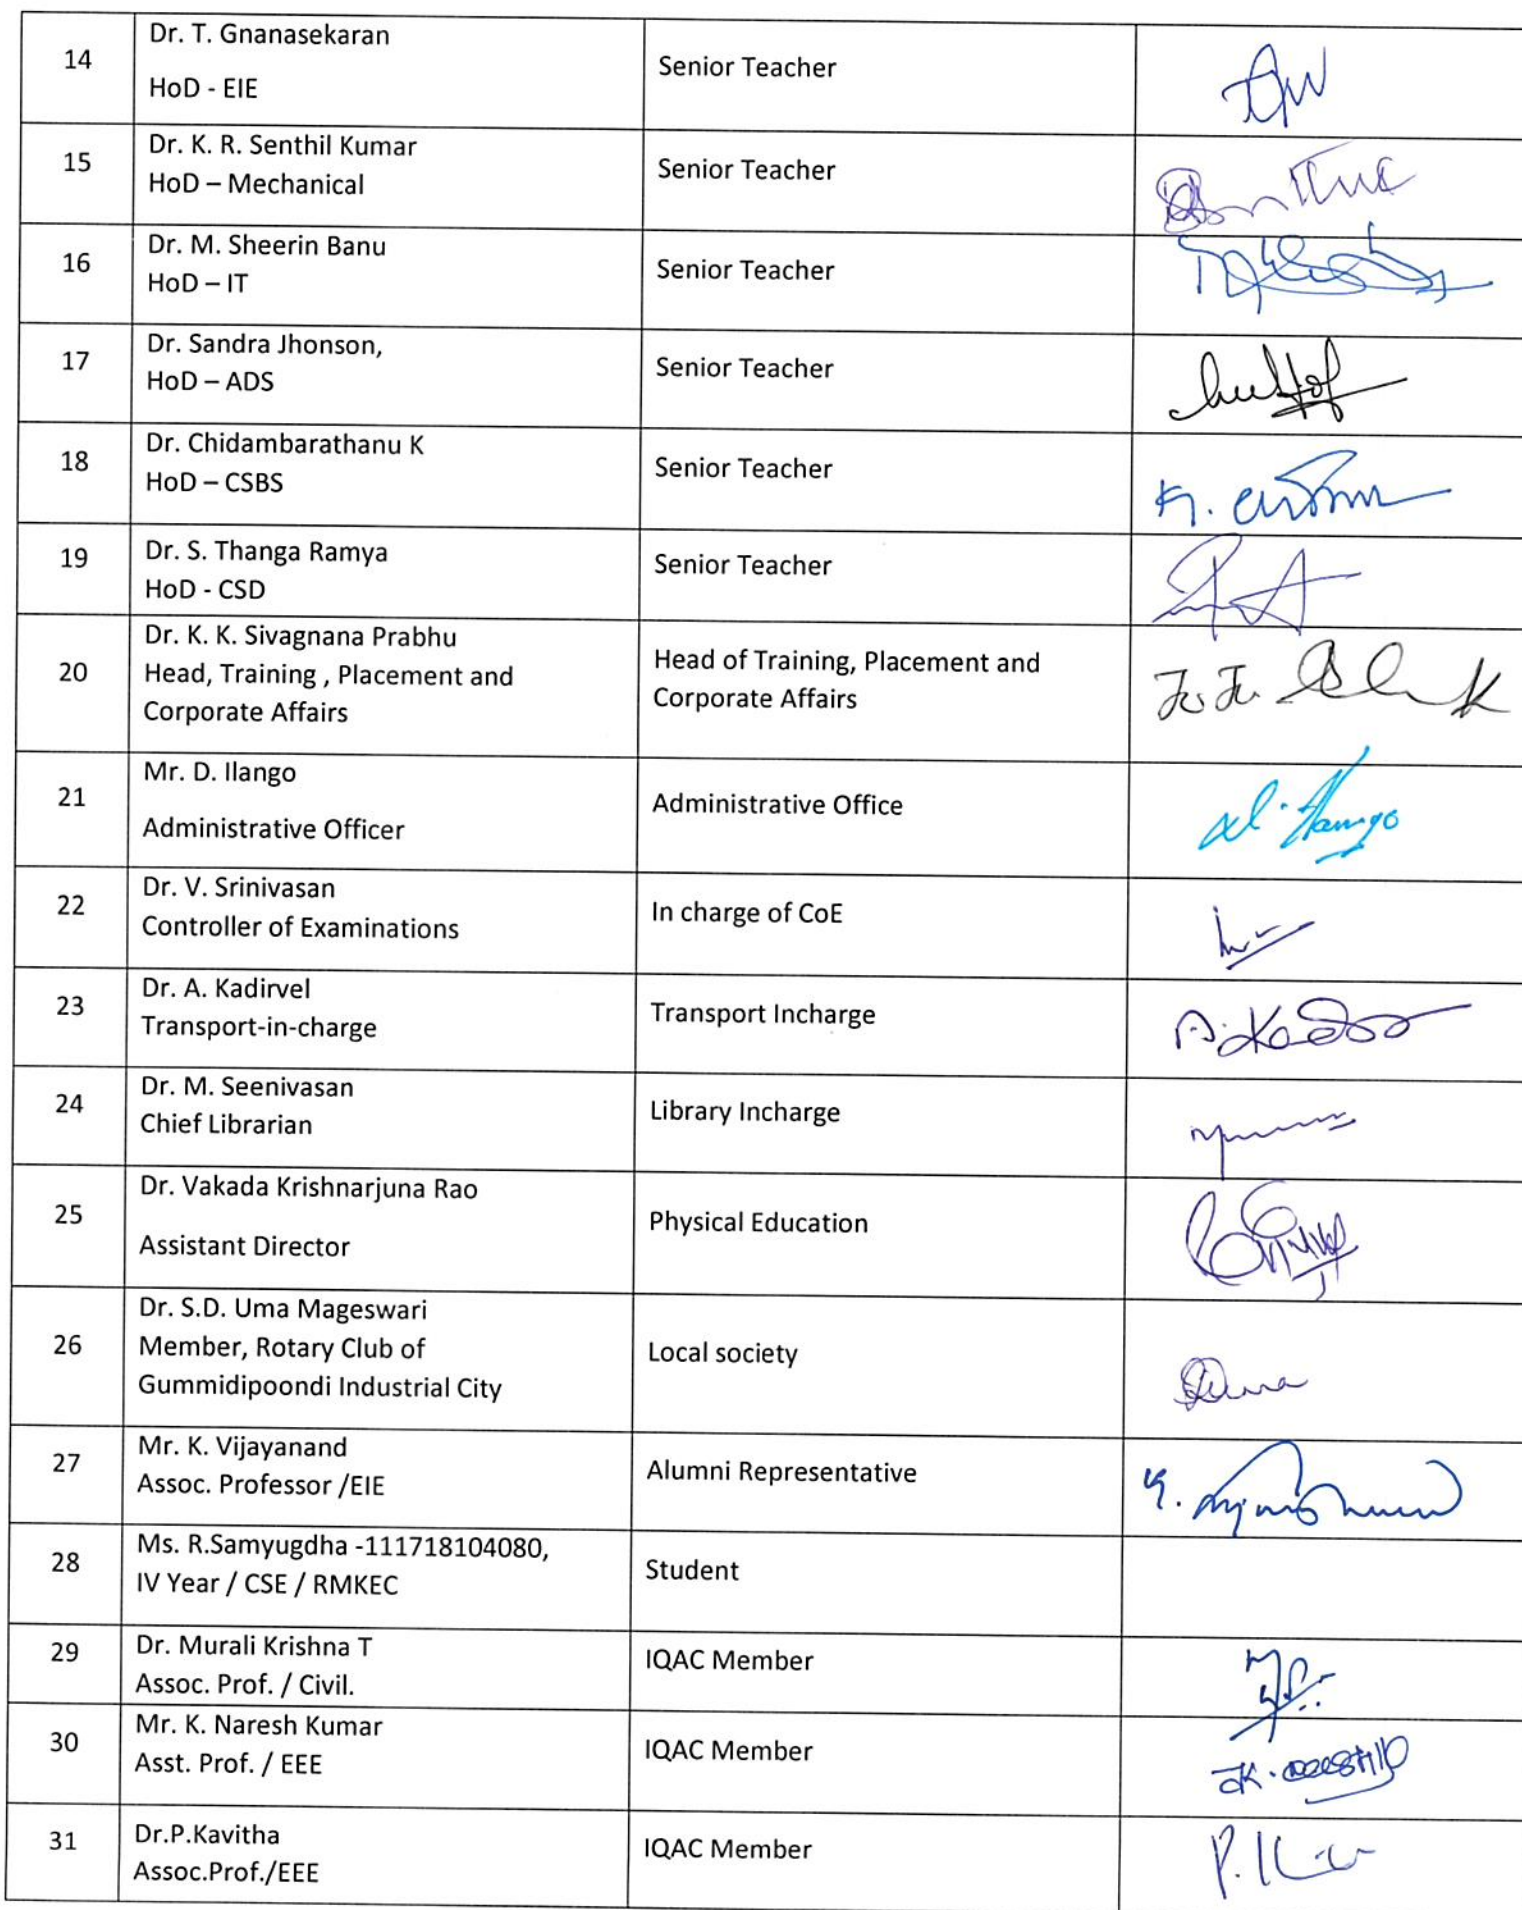 14
Dr. T. Gnanasekaran
HoD - EIE
Senior Teacher
15
Dr. K. R. Senthil Kumar
HoD – Mechanical
Senior Teacher
16
Dr. M. Sheerin Banu
HoD – IT
Senior Teacher
17
Dr. Sandra Jhonson,
HoD – ADS
Senior Teacher
18
Dr. Chidambarathanu K
HoD – CSBS
Senior Teacher
19
Dr. S. Thanga Ramya
HoD - CSD
Senior Teacher
20
Dr. K. K. Sivagnana Prabhu
Head, Training , Placement and
Corporate Affairs
Head of Training, Placement and
Corporate Affairs
21
Mr. D. Ilango
Administrative Officer
Administrative Office
D. Ilango
22
Dr. V. Srinivasan
Controller of Examinations
In charge of CoE
23
Dr. A. Kadirvel
Transport-in-charge
Transport Incharge
24
Dr. M. Seenivasan
Chief Librarian
Library Incharge
25
Dr. Vakada Krishnarjuna Rao
Assistant Director
Physical Education
26
Dr. S.D. Uma Mageswari
Member, Rotary Club of
Gummidipoondi Industrial City
Local society
27
Mr. K. Vijayanand
Assoc. Professor /EIE
Alumni Representative
28
Ms. R.Samyugdha -111718104080,
IV Year / CSE / RMKEC
Student
29
Dr. Murali Krishna T
Assoc. Prof. / Civil.
IQAC Member
30
Mr. K. Naresh Kumar
Asst. Prof. / EEE
IQAC Member
31
Dr.P.Kavitha
Assoc.Prof./EEE
IQAC Member